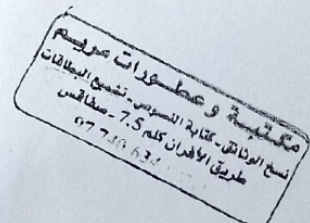 مكتبة وعطورات مريم
نسخ الوثائق - كتابة النصوص - تشميع البطاقات
طريق الأفران كلم 7.5 - صفاقس